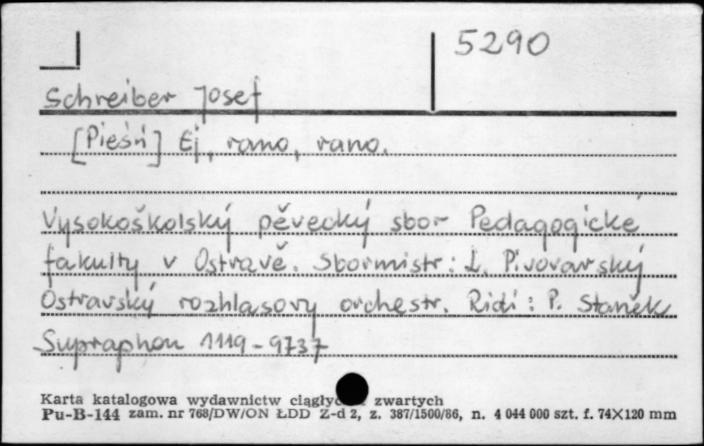 5290
Schreiber Josef
[Pieśń] Ej, rano, rano.
Vysokoškolský pěvecký sbor Pedagogické
fakulty v Ostravě. Sbormistr: L. Pivovarský
Ostravský rozhlasový orchestr. Řídí: P. Staněk
Supraphon 1119-9737
Karta katalogowa wydawnictw zwartych
Pu-B-144 zam. nr 768/DW/ON ŁDD Z-d 2, z. 387/1500/86, n. 4 044 000 szt. f. 74X120 mm